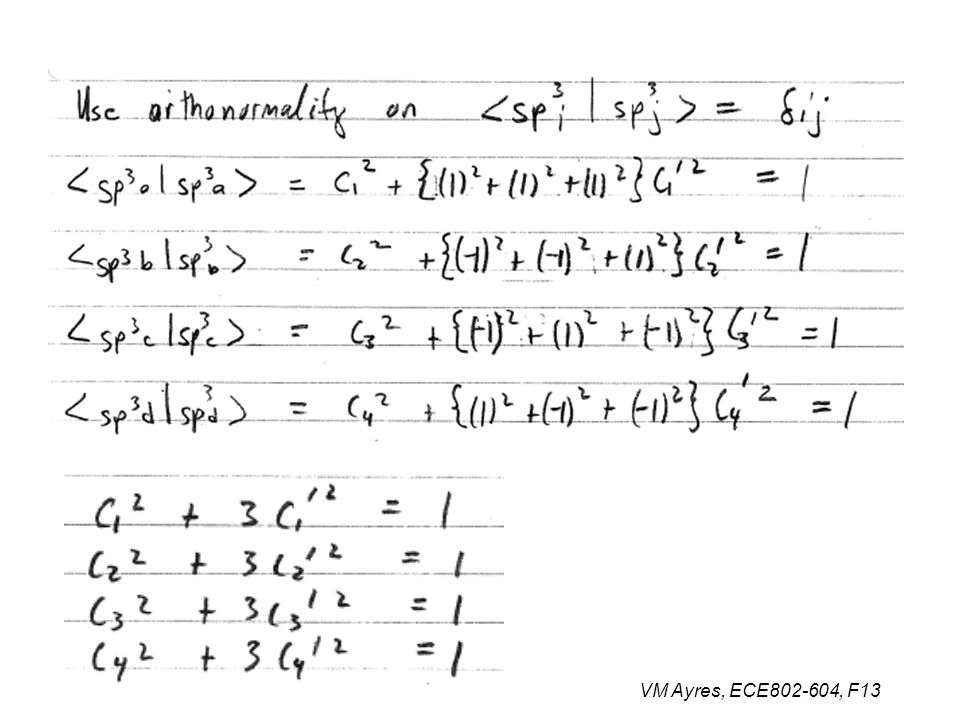 Use orthonormality on <sp³i | sp³j> = δij
<sp³a | sp³a> = C₁² + {(1)² + (1)² + (1)²} C₁'² = 1
<sp³b | sp³b> = C₂² + {(-1)² + (-1)² + (1)²} C₂'² = 1
<sp³c | sp³c> = C₃² + {(-1)² + (1)² + (-1)²} C₃'² = 1
<sp³d | sp³d> = C₄² + {(1)² + (-1)² + (-1)²} C₄'² = 1
C₁² + 3 C₁'² = 1
C₂² + 3 C₂'² = 1
C₃² + 3 C₃'² = 1
C₄² + 3 C₄'² = 1
VM Ayres, ECE802-604, F13